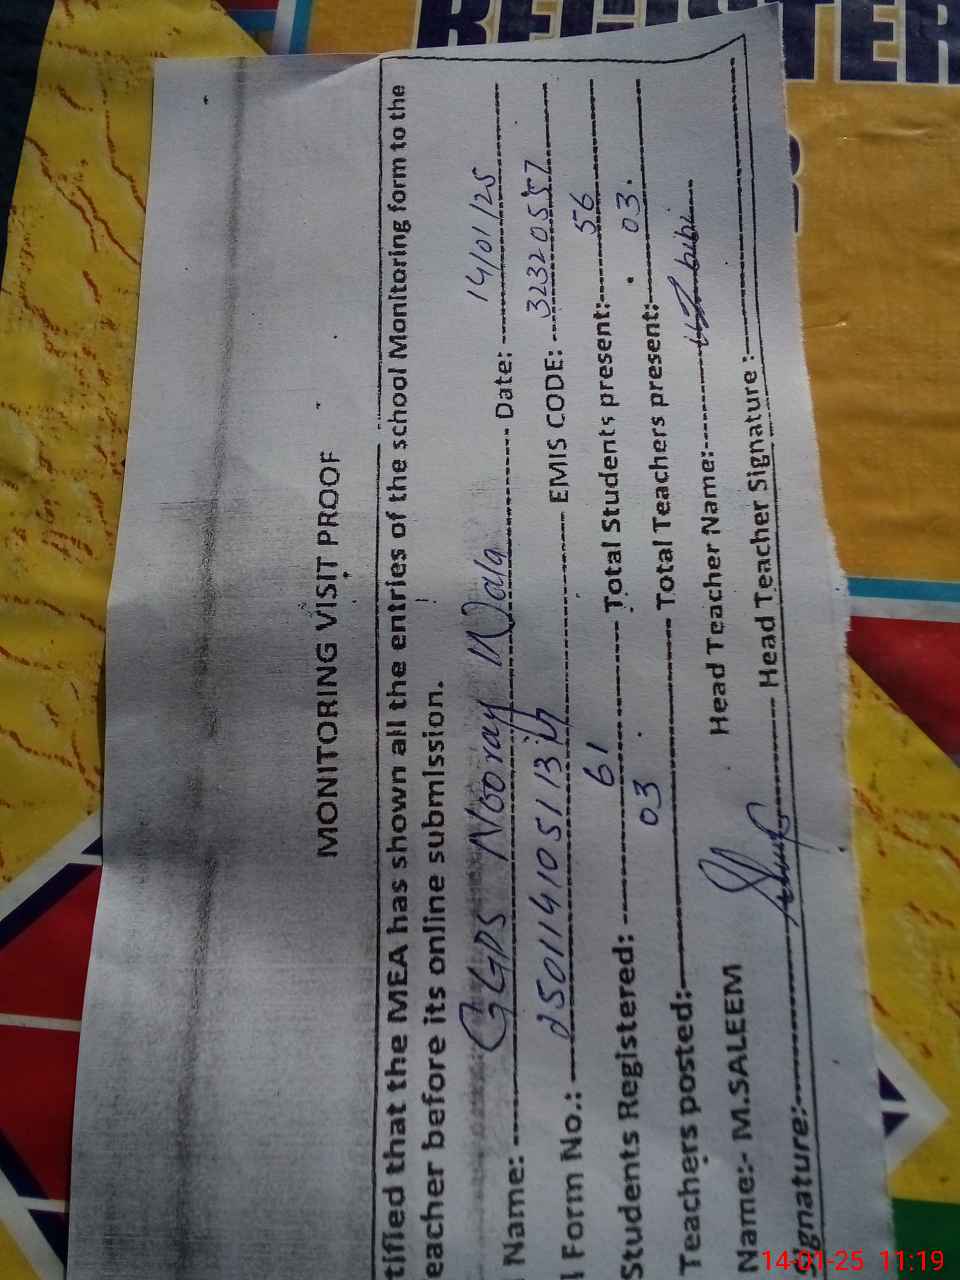 REGISTER
MONITORING VISIT PROOF
tified that the MEA has shown all the entries of the school Monitoring form to the
eacher before its online submission.
Name: GGPS Nooray Wala Date: 14/01/25
l Form No.: EMIS CODE: 32320557
Students Registered: 61 Total Students present: 56
Teachers posted: 03 Total Teachers present: 03.
Name:- M.SALEEM Head Teacher Name: bibi
Signature: Head Teacher Signature :
14-01-25 11:19